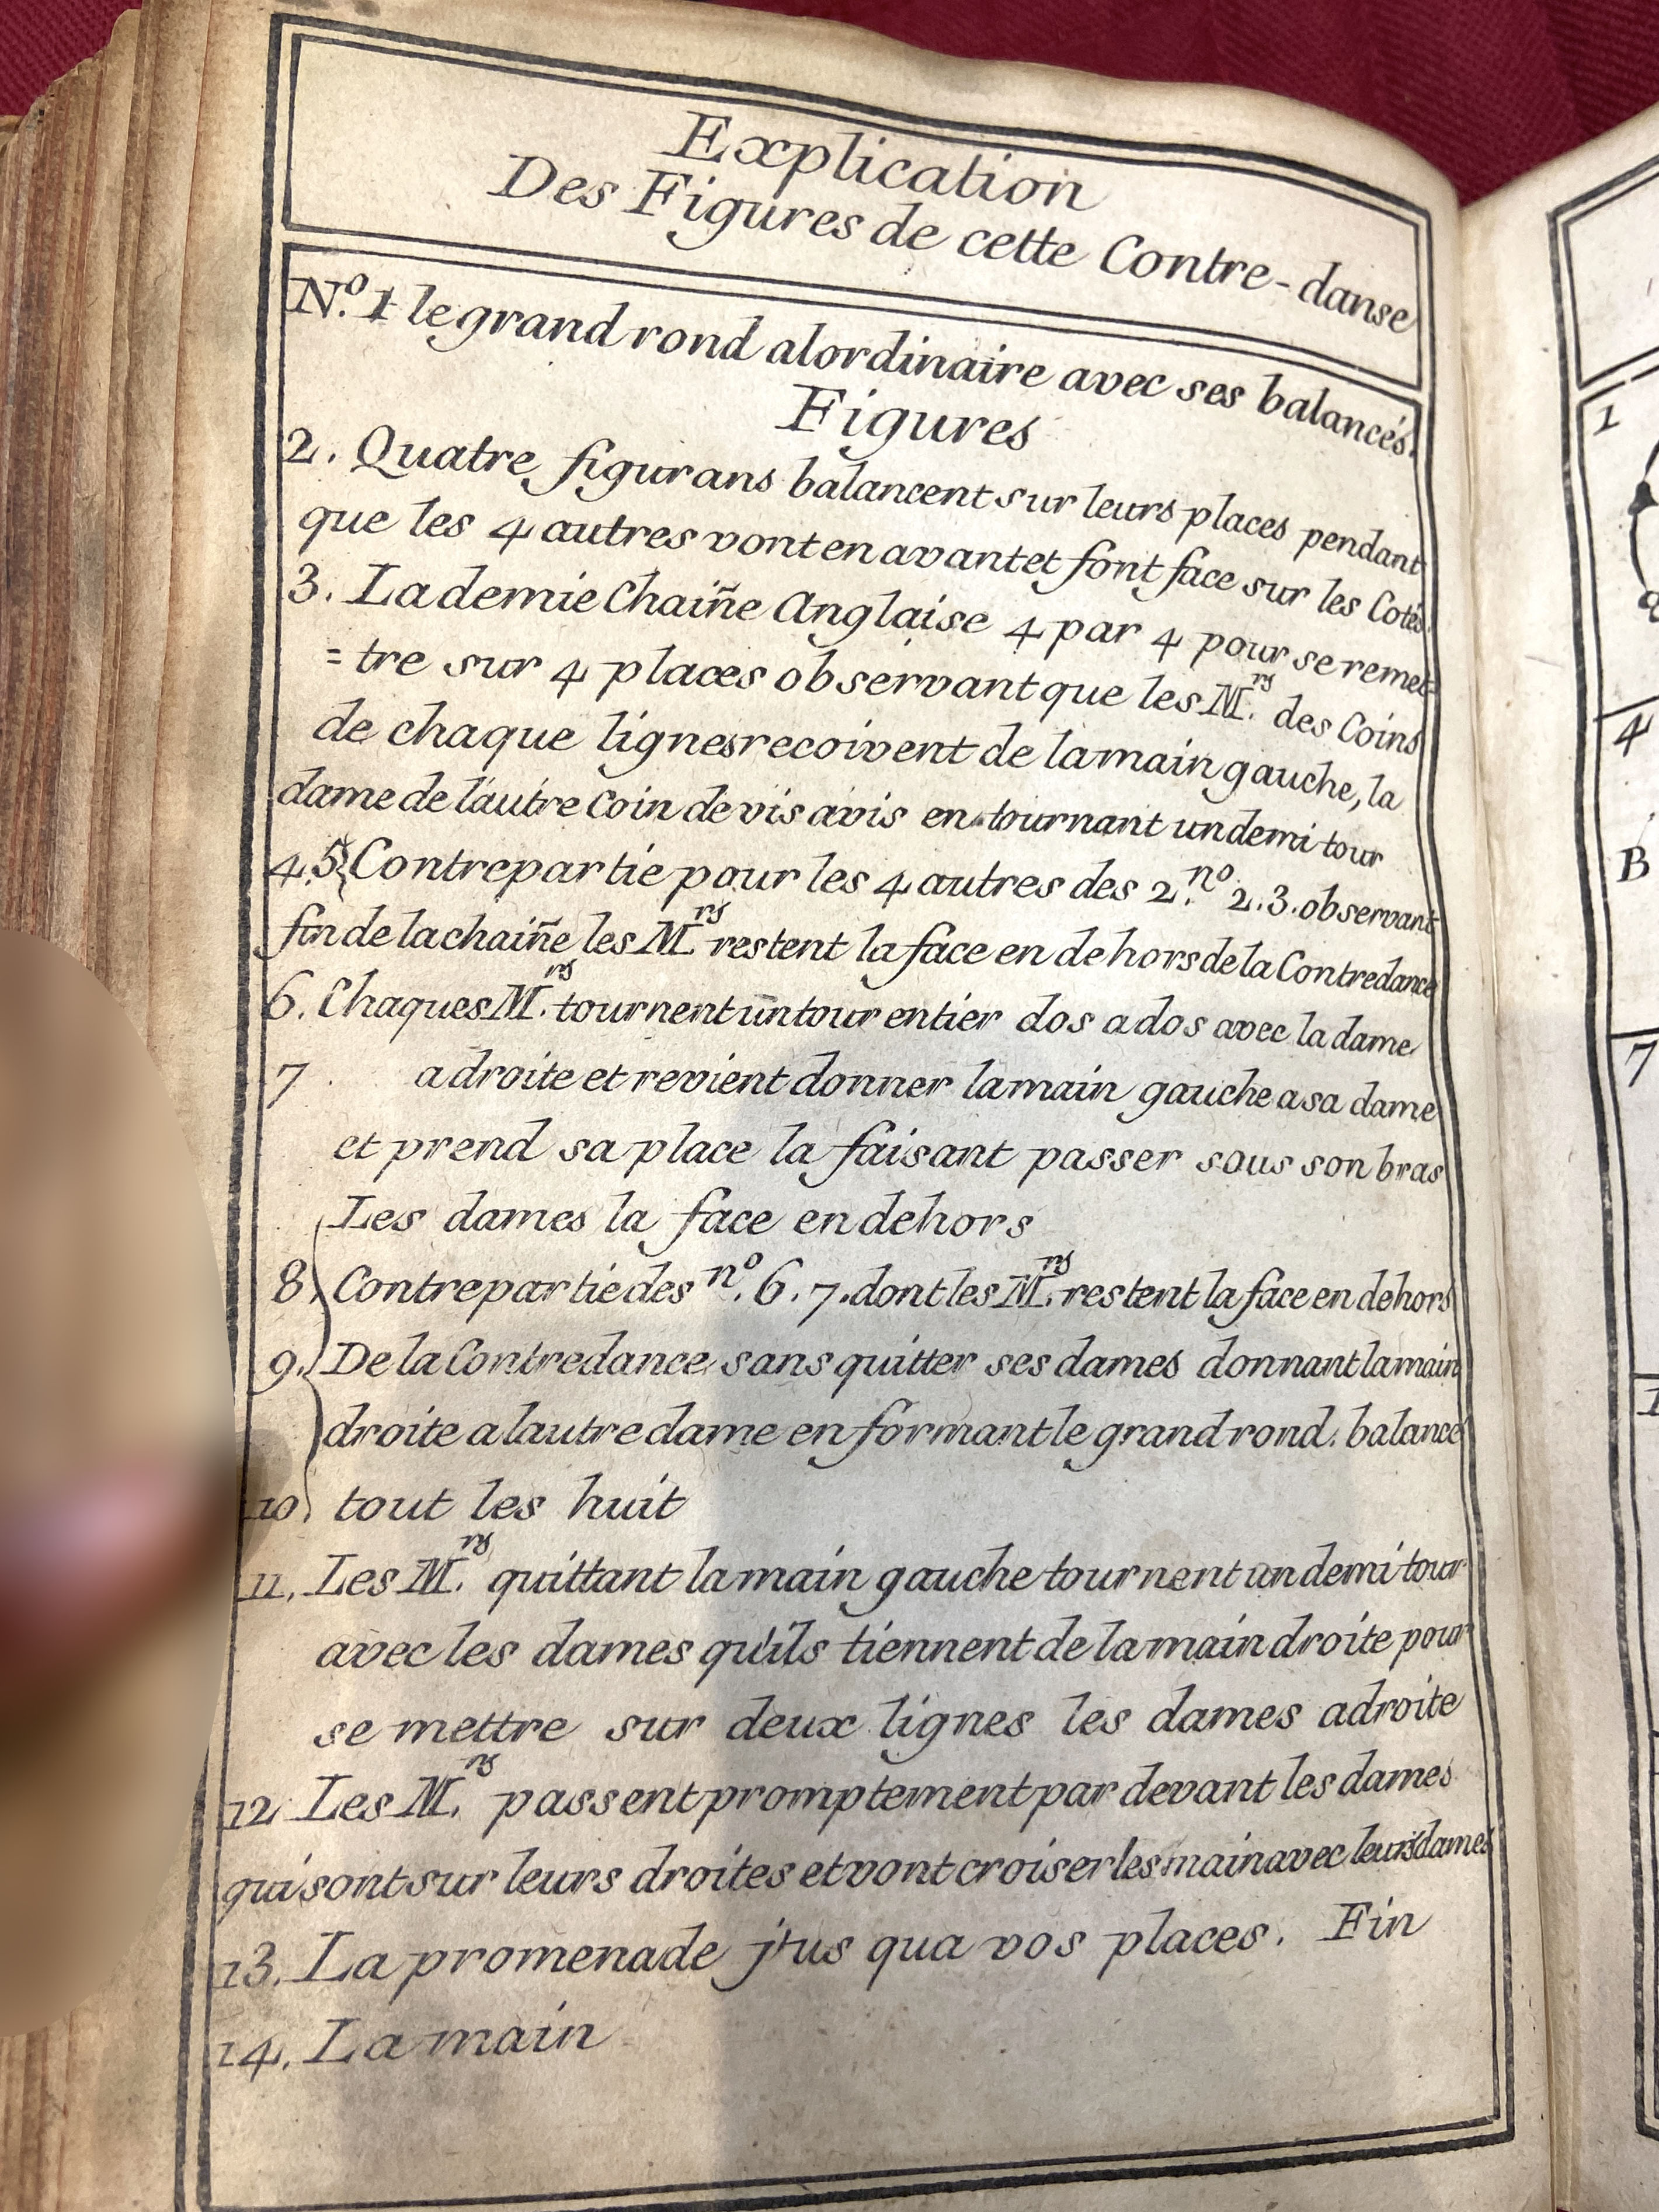 Explication
Des Figures de cette Contre-danse
N.º 1 le grand rond alordinaire avec ses balancés.
Figures
2. Quatre figurans balancent sur leurs places pendant
que les 4 autres vont en avant et font face sur les Cotés.
3. La demie Chaiñe Anglaise 4 par 4 pour se remet=
=tre sur 4 places observant que les M.rs des Coins
de chaque lignes recoivent de la main gauche, la
dame de l'autre Coin de vis avis en tournant un demi tour
4.5 Contrepartie pour les 4 autres des 2.no 2.3. observant
fin de la chaiñe les M.rs restent la face en dehors de la Contredance
6. Chaques M.rs tournent un tour entier dos a dos avec la dame
7 a droite et revient donner la main gauche a sa dame
et prend sa place la faisant passer sous son bras
Les dames la face en dehors
8. Contrepartie des no. 6. 7. dont les M.rs restent la face en dehors
9. De la Contredance sans quitter ses dames donnant la main
droite a lautre dame en formant le grand rond. balancé
10 tout les huit
11. Les M.rs quittant la main gauche tournent un demi tour
avec les dames qu'ils tiennent de la main droite pour
se mettre sur deux lignes les dames a droite
12 Les M.rs passent promptement par devant les dames
qui sont sur leurs droites et vont croiser les main avec leurs dames
13. La promenade j'us qua vos places. Fin
14. La main
1
4
B
7